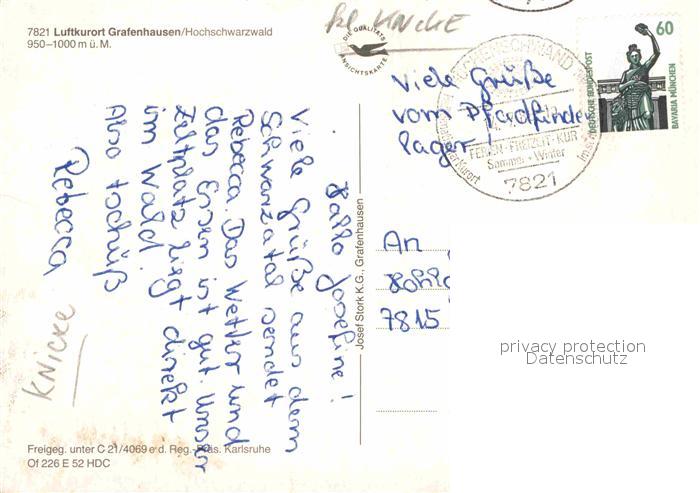 7821 Luftkurort Grafenhausen/Hochschwarzwald
950–1000 m ü. M.
kl. KNICKE
DIE QUALITÄTS
ANSICHTSKARTE
60
DEUTSCHE BUNDESPOST
BAVARIA MÜNCHEN
FERIEN-FREIZEIT-KUR
Sommer + Winter
7821
Viele Grüße
vom Pfadfinder
lager!
Hallo Josefine!
Viele Grüße aus dem
Schwarzatal sendet
Rebecca. Das Wetter und
das Essen ist gut. Unser
Zeltplatz liegt direkt
im Wald.
Also tschüß
Rebecca
KNICKE
Josef Stork K.G., Grafenhausen
An
7815
privacy protection
Datenschutz
Freigeg. unter C 21/4069 e d. Reg.-Präs. Karlsruhe
Of 226 E 52 HDC